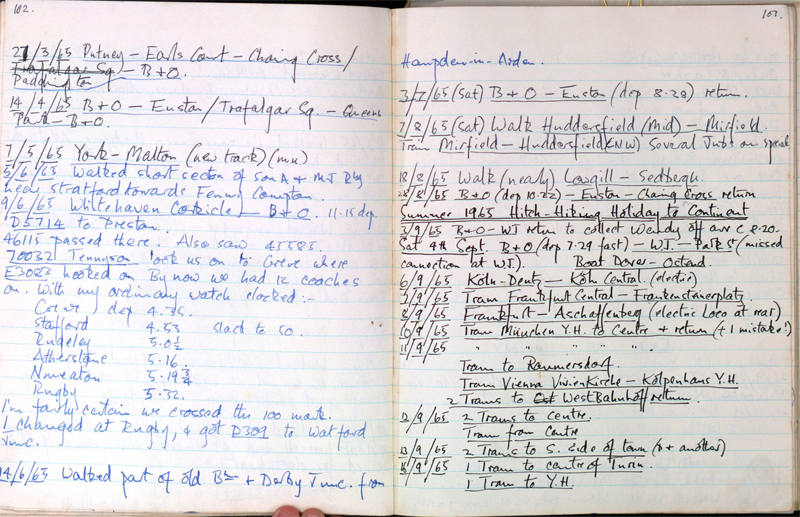 102.
21/3/65 Putney – Earls Court – Charing Cross/
Trafalgar Sq. – B+O.
Paddington
14/4/65 B+O – Euston/Trafalgar Sq. – Queens
Park – B+O.
7/5/65 York – Malton (new track) (mu)
5/6/65 Walked short section of S on A & MJ Rly
near Stratford towards Fenny Compton.
9/6/65 Whitehaven – B+O. 11.15 dep.
D5714 to Preston.
46115 passed there. Also saw 45583.
70032 Tennyson took us on to Crewe where
E3083 hooked on. By now we had 12 coaches
on. With my ordinary watch clocked :–
Crewe dep 4.35.
Stafford 4.53 slack to 50.
Rugeley 5.0½
Atherstone 5.16.
Nuneaton 5.19¾
Rugby 5.32.
I'm fairly certain we crossed the 100 mark.
I changed at Rugby, & got D309 to Watford
Junc.
14/6/65 Walked part of old B'm + Derby Junc. from
103.
Hampden-in-Arden.
3/7/65 (Sat) B+O – Euston (dep 8.28) return.
7/8/65 (Sat) Walk Huddersfield (Mid) – Mirfield.
Train Mirfield – Huddersfield (LNW) Several Jubs on special
18/8/65 Walk (nearly) Lowgill – Sedbergh.
28/8/65 B+O (dep 10.22) – Euston – Charing Cross return
Summer 1965 Hitch-Hiking Holiday to Continent
3/9/65 B+O – WJ return to collect Wendy off arr c 8.20.
Sat 4th Sept. B+O (dep 7.29 fast) – WJ. – Park St (missed
connection at W.J.). Boat Dover – Ostend.
6/9/65 Köln-Deutz – Köln Central. (electric)
7/9/65 Tram Frankfurt Central – Frankensteinerplatz.
8/9/65 Frankfurt – Aschaffenburg (electric loco at rear)
10/9/65 Tram München Y.H. to Centre + return (+ 1 mistake!)
11/9/65 " " " " "
Tram to Rammersdorf.
Tram Vienna – Kolpenhaus Y.H.
2 Trams to West Bahnhof return.
12/9/65 2 Trams to centre.
Tram from Centre
13/9/65 2 Trams to S. side of town (& another)
18/9/65 1 Tram to centre of Turin.
1 Tram to Y.H.